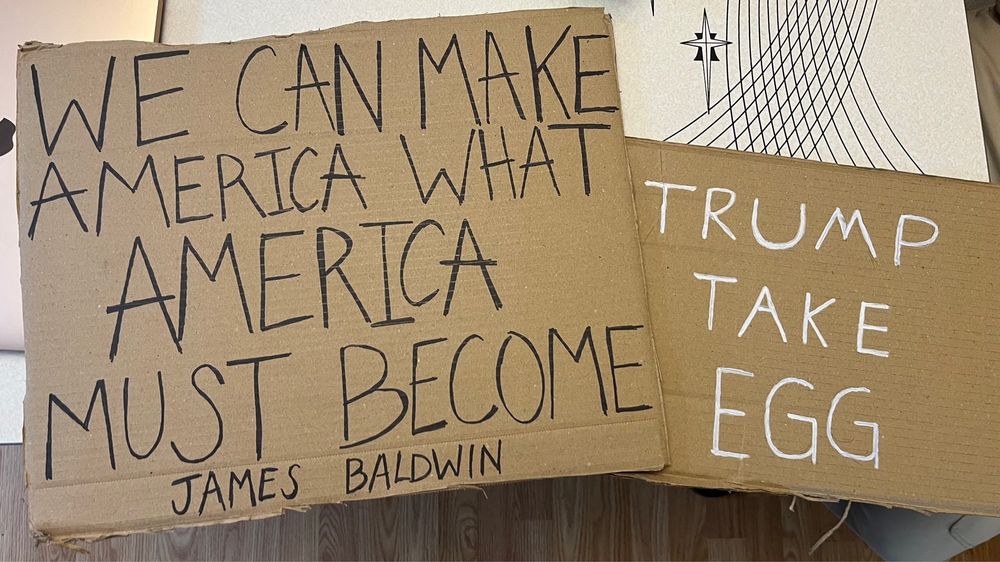 WE CAN MAKE
AMERICA WHAT
AMERICA
MUST BECOME
JAMES BALDWIN
TRUMP
TAKE
EGG